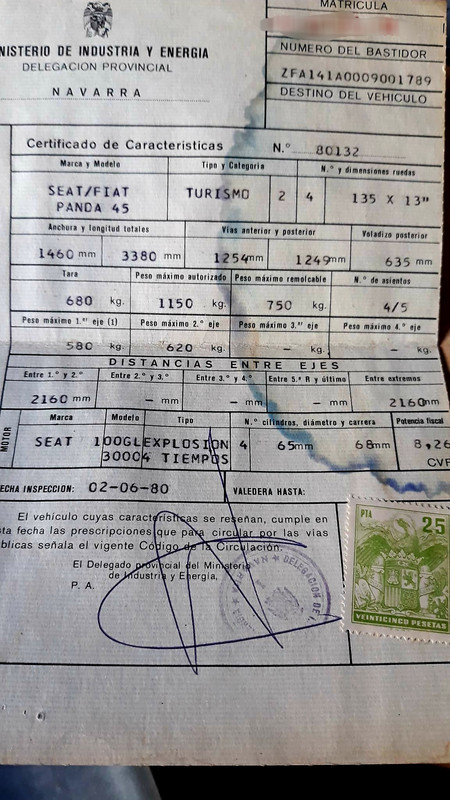 MATRICULA
NISTERIO DE INDUSTRIA Y ENERGIA
DELEGACION PROVINCIAL
NAVARRA
NUMERO DEL BASTIDOR
ZFA141A0009001789
DESTINO DEL VEHICULO
Certificado de Características N.º 80132
Marca y Modelo Tipo y Categoría N.º y dimensiones ruedas
SEAT/FIAT TURISMO 2 4 135 X 13"
PANDA 45
Anchura y longitud totales Vías anterior y posterior Voladizo posterior
1460 mm 3380 mm 1254mm 1249mm 635 mm
Tara Peso máximo autorizado Peso máximo remolcable N.º de asientos
680 kg. 1150 kg. 750 kg. 4/5
Peso máximo 1.er eje (1) Peso máximo 2.º eje Peso máximo 3.er eje Peso máximo 4.º eje
580 kg. 620 kg. – kg. – kg.
DISTANCIAS ENTRE EJES
Entre 1.º y 2.º Entre 2.º y 3.º Entre 3.º y 4.º Entre 5.º R y último Entre extremos
2160 mm – mm – mm – mm 2160mm
MOTOR
Marca Modelo Tipo N.º cilindros, diámetro y carrera Potencia fiscal
SEAT 100GLEXPLOSION 4 65mm 68mm 8,26
30004 TIEMPOS CVF
ECHA INSPECCION: 02-06-80 VALEDERA HASTA:
El vehículo cuyas características se reseñan, cumple en
sta fecha las prescripciones que para circular por las vías
blicas señala el vigente Código de la Circulación.
El Delegado provincial del Ministerio
de Industria y Energía,
P. A.
DELEGACION DE
PTA 25
VEINTICINCO PESETAS